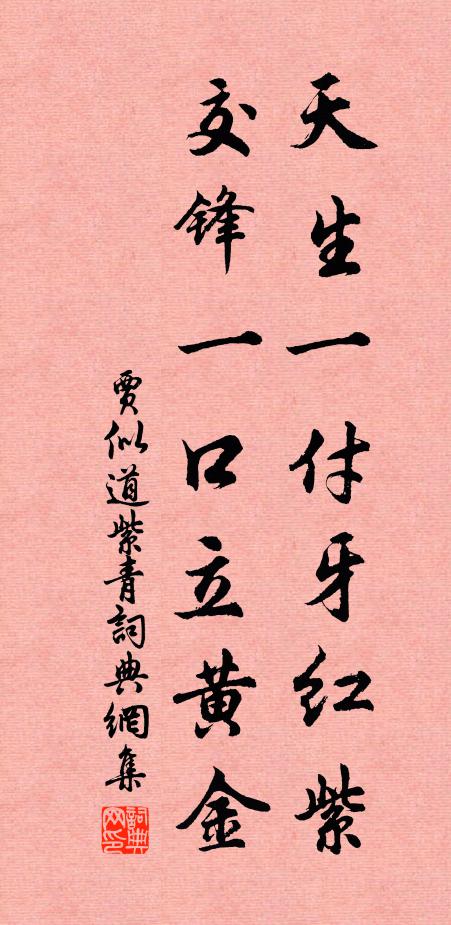 天生一付牙红紫
交锋一口立黄金
贾似道紫青詞典網集
詞典网印